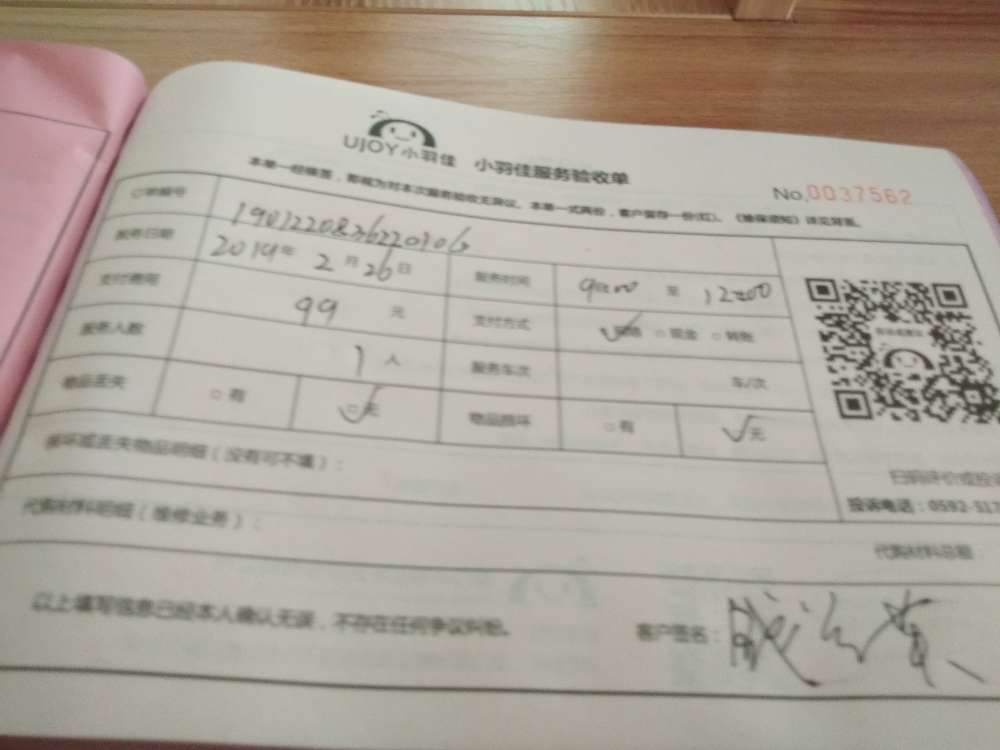 UJOY小羽佳 小羽佳服务验收单
No.0037562
本单一经填签，即视为对本次服务验收无异议。本单一式两份，客户留存一份(红)。《维保须知》详见背面。
订单编号
服务日期 2019年 2 月 26 日 服务时间 至 12:00
支付费用 99 元 支付方式 □ 现金 □ 转账
服务人数 1 人 服务车次 车/次
物品丢失 □ 有 □ 无 物品损坏 □ 有 无
损坏或丢失物品明细（没有可不填）：
扫码评价或投
投诉电话：0592-517
代购材料明细（维修业务）：
代购材料总额
以上填写信息已经本人确认无误，不存在任何争议纠纷。 客户签名：